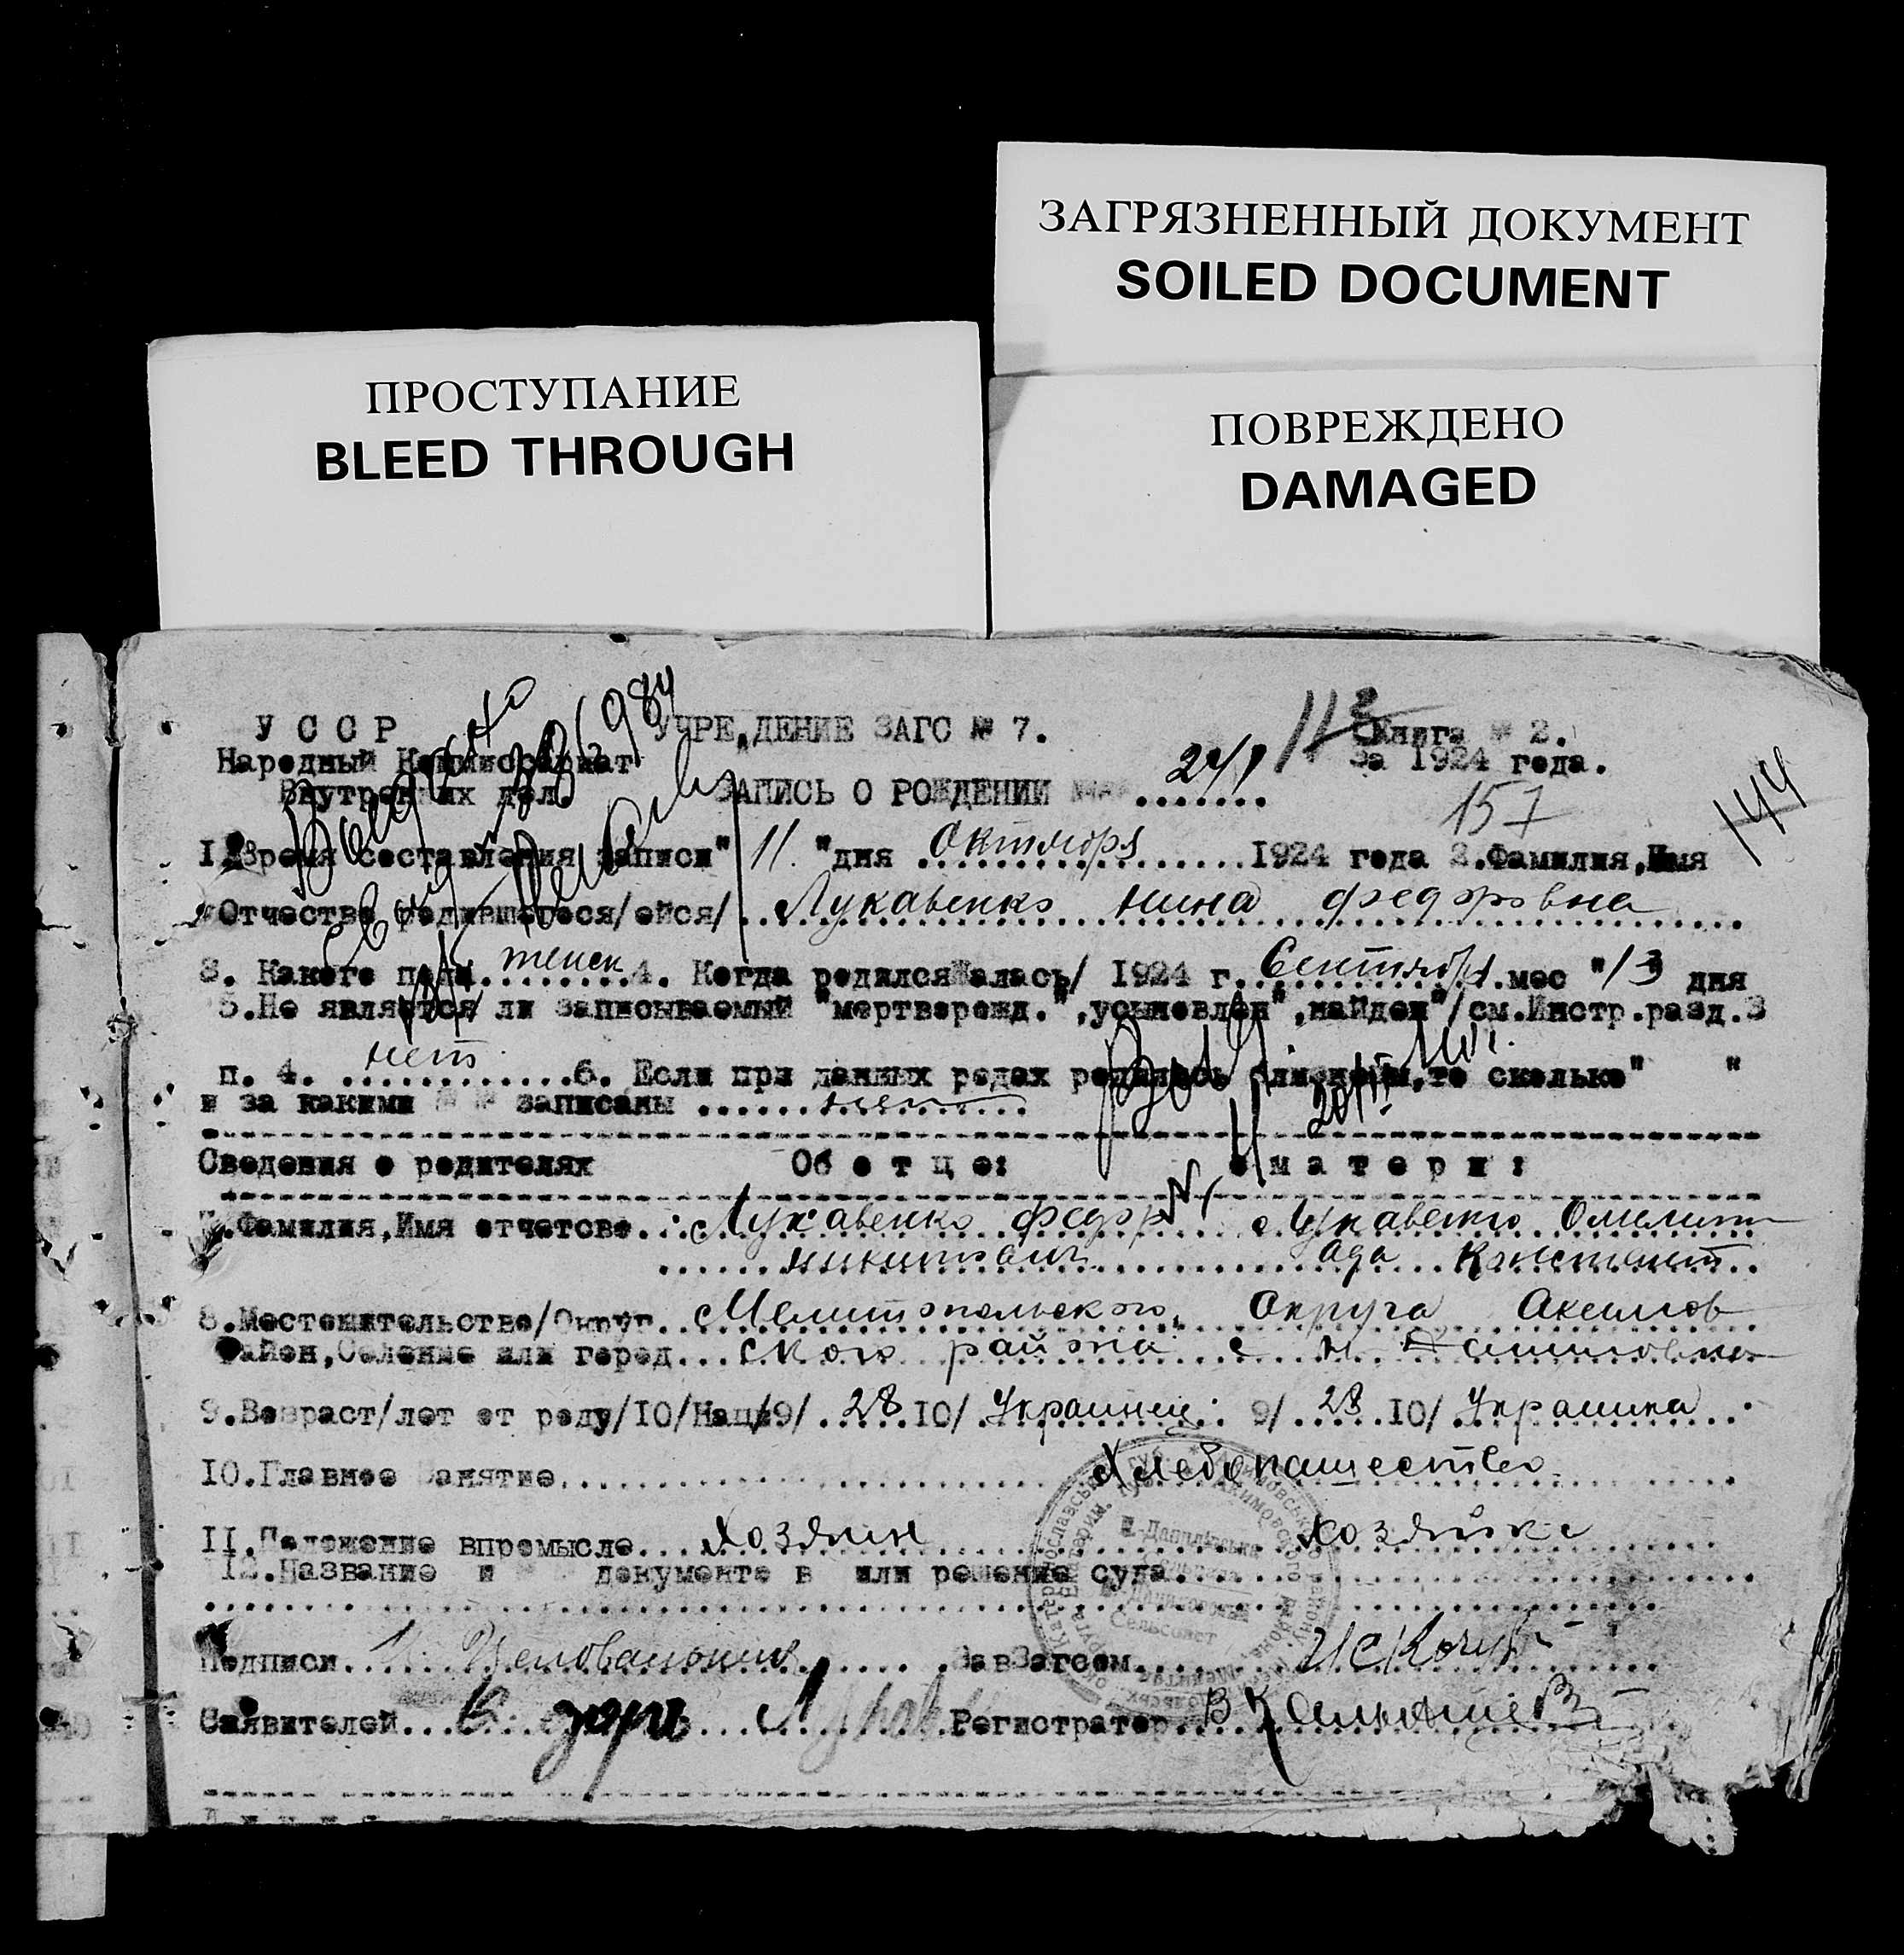 ЗАГРЯЗНЕННЫЙ ДОКУМЕНТ
SOILED DOCUMENT
ПРОСТУПАНИЕ
BLEED THROUGH
ПОВРЕЖДЕНО
DAMAGED
У С С Р УЧРЕ,ДЕНИЕ ЗАГС № 7. 113 Книга № 2.
Народный Комиссариат За 1924 года.
Внутренних дел. ЗАПИСЬ О РОЖДЕНИИ 241
157
144
1984
I.Время составления записи" 11. "дня Октября 1924 года 2.Фамилия,Имя
Отчество родившегося/ейся/ Лукавенко Нина Федоровна
3. Какого пола женск 4. Когда родился/алась/ 1924 г. Сентября мес "13 дня
5.Не является ли записываемый "мертворожд.",усыновлен",найден"/см.Инстр.разд.3
п. 4. нет 6. Если при данных родах родилась близнецы,то сколько" "
и за какими № № записаны нет
Сведения о родителях Об о т ц е: о м а т е р и :
7.Фамилия,Имя отчетсво Лукавенко Федор Лукавенко Омелит
Никитович ада Констант
8.Местожительство/Округ Мелитопольского Округа Акимов
Район,Селение или город ского района с Н Даниловка
9.Возраст/лет от роду/10/Нац/9/ 28 10/ Украинец 9/ 28 10/ Украинка
10.Главное занятие Хлебопашество
11.Положение впромысле Хозяин хозяйка
12.Название и документа в или решение суда
Сельсовет
Подписи ЗавЗагсом
Заявителей Регистратор